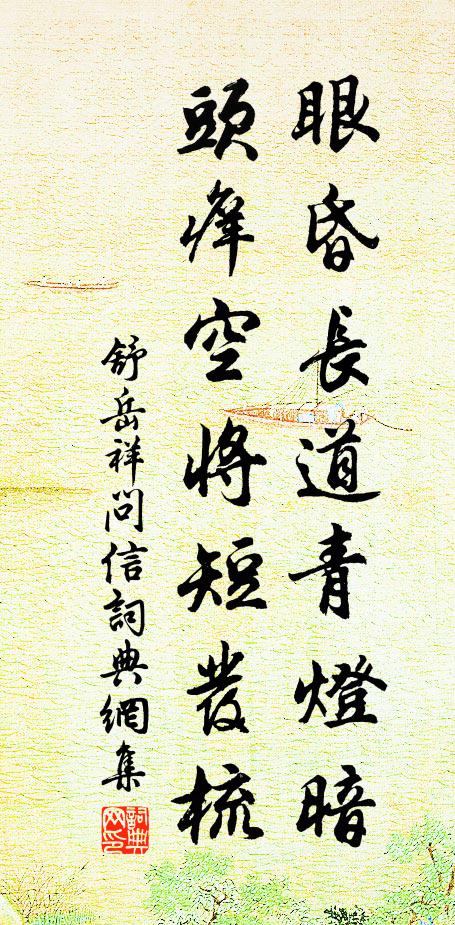 眼昏長道青燈暗
頭癢空將短發梳
舒岳祥問信詞典網集
詞典網印